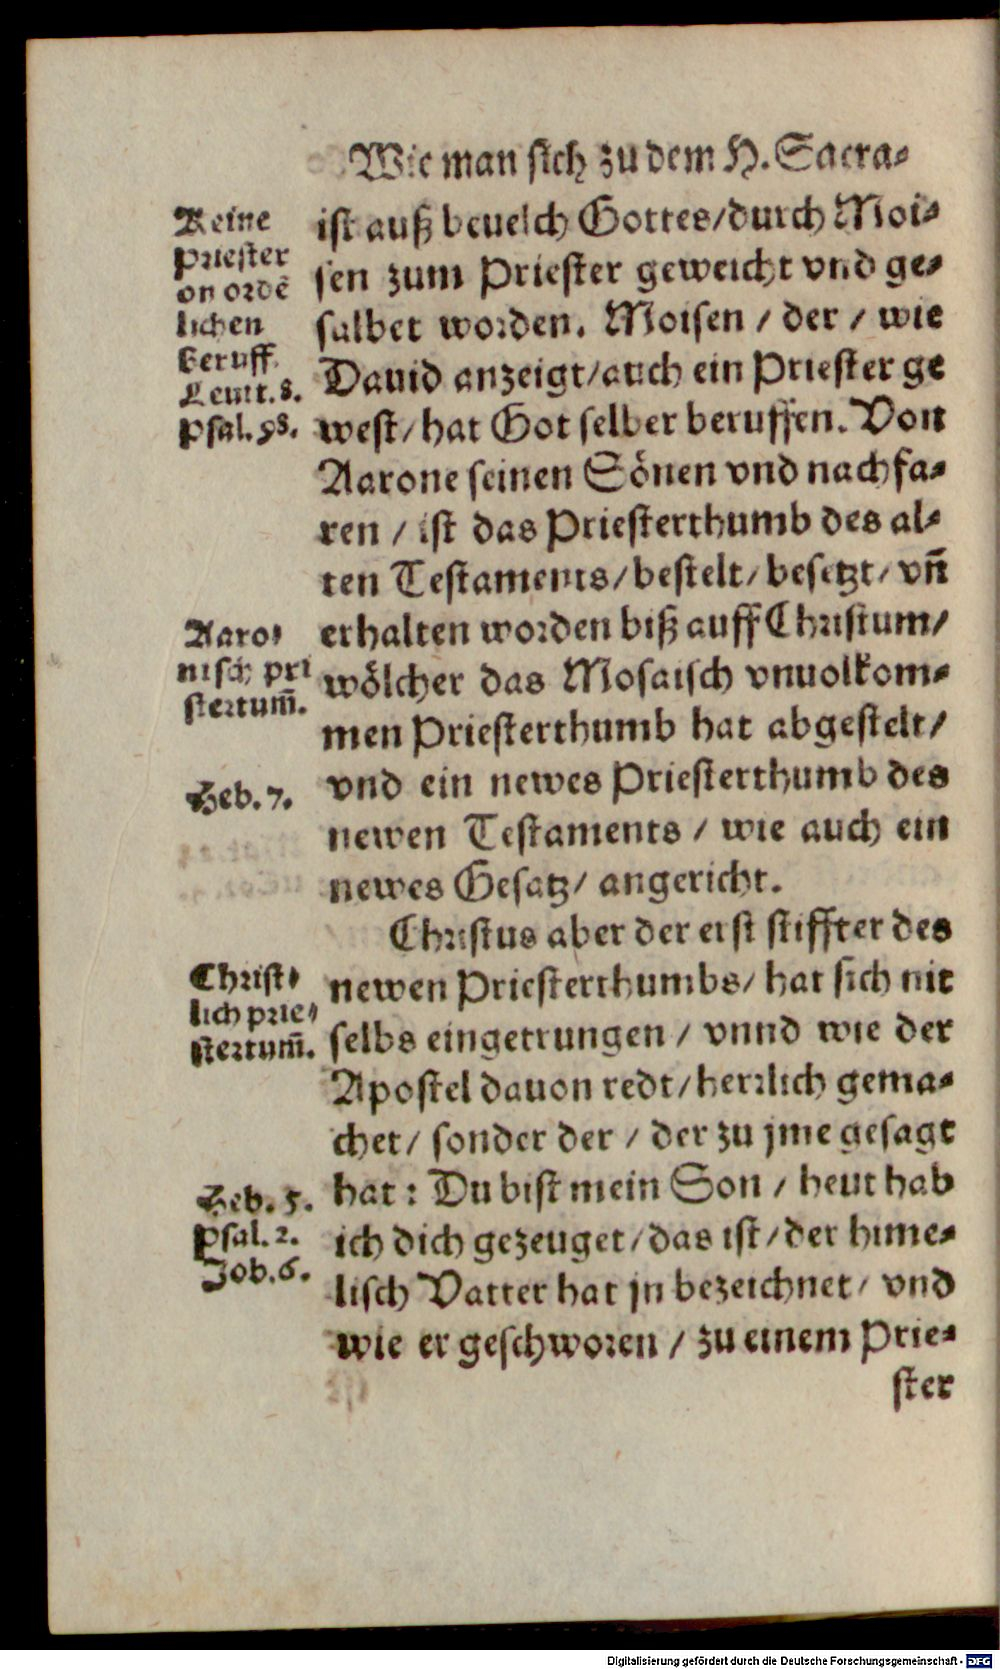 Wie man sich zu dem H. Sacra-
Keine
Priester
on ordē
lichen
beruff.
Leuit. 8.
Psal. 98.
ist auß beuelch Gottes/durch Moi-
sen zum Priester geweicht vnd ge-
salbet worden. Moisen / der / wie
Dauid anzeigt/auch ein Priester ge
west/hat Got selber beruffen. Von
Aarone seinen Sönen vnd nachfa-
ren / ist das Priesterthumb des al-
ten Testaments/bestelt/besetzt/vñ
Aaro-
nisch pri
stertum̃.
erhalten worden biß auff Christum/
wölcher das Mosaisch vnuolkom-
men Priesterthumb hat abgestelt/
Heb. 7.
vnd ein newes Priesterthumb des
newen Testaments / wie auch ein
newes Gesatz/ angericht.
Christus aber der erst stiffter des
Christ-
lich prie-
stertum̃.
newen Priesterthumbs/ hat sich nit
selbs eingetrungen / vnnd wie der
Apostel dauon redt/herrlich gema-
chet/ sonder der / der zu jme gesagt
Heb. 5.
Psal. 2.
Joh. 6.
hat : Du bist mein Son / heut hab
ich dich gezeuget/das ist/der hime-
lisch Vatter hat jn bezeichnet/ vnd
wie er geschworen / zu einem Prie-
ster
Digitalisierung gefördert durch die Deutsche Forschungsgemeinschaft - DFG